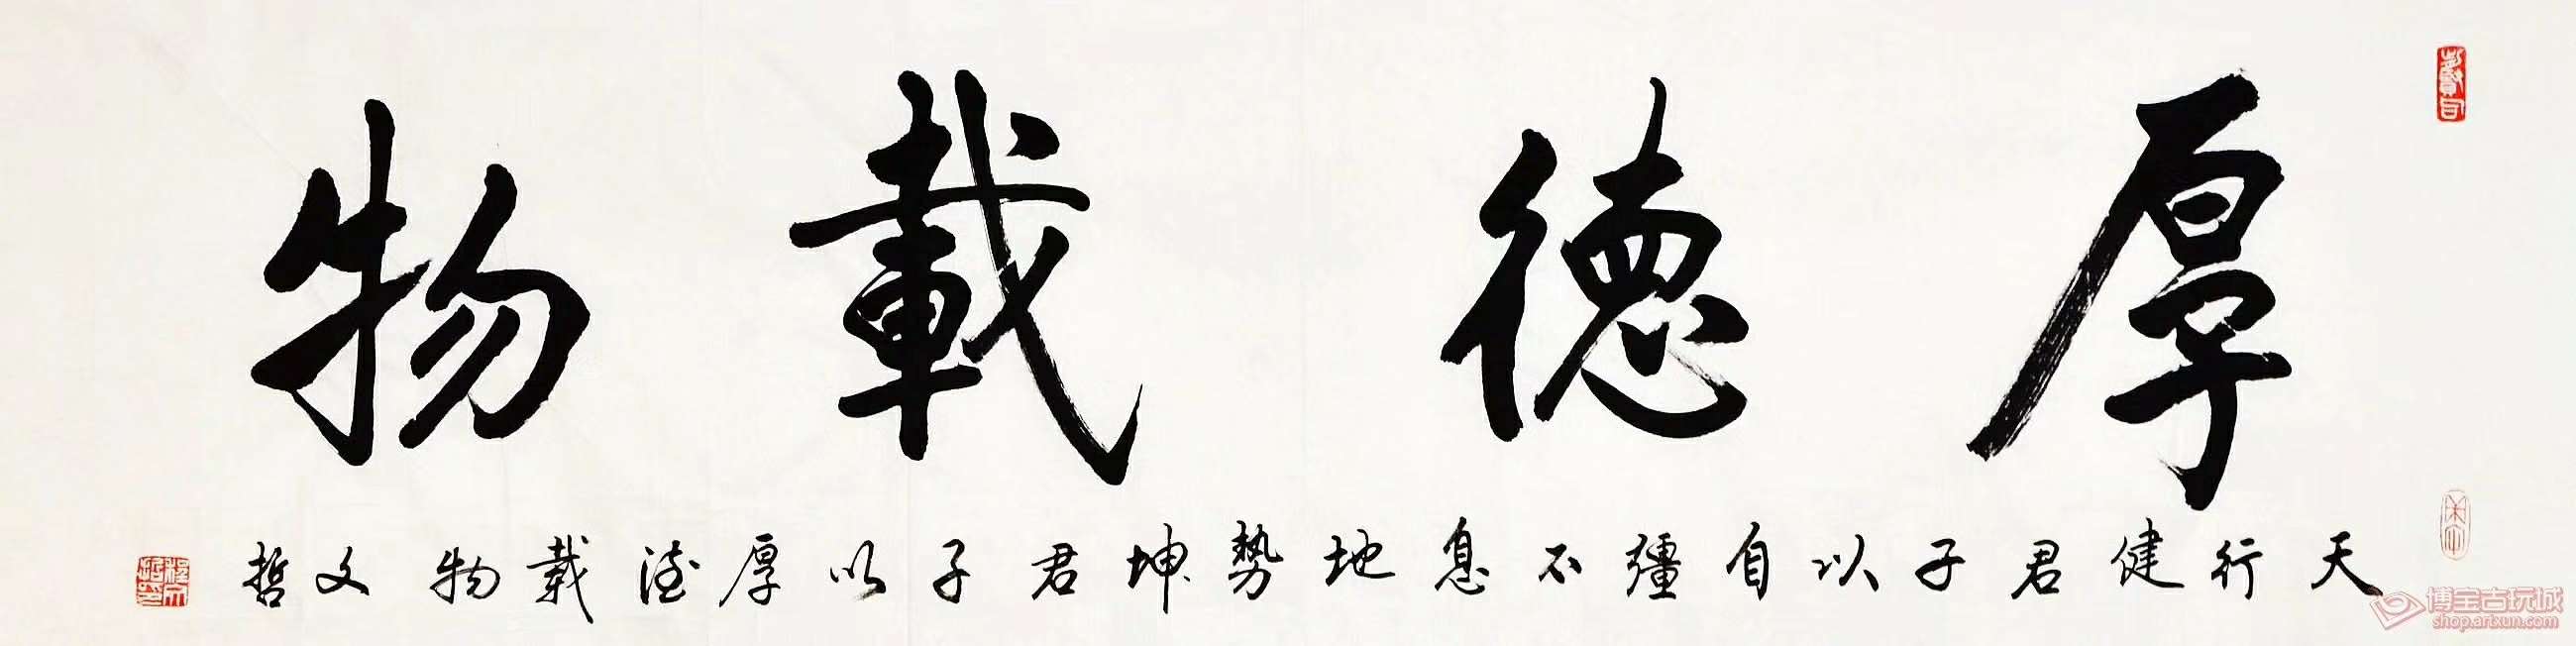 厚德載物
天行健君子以自彊不息地勢坤君子以厚德載物 文哲
博宝古玩城
shop.artxun.com